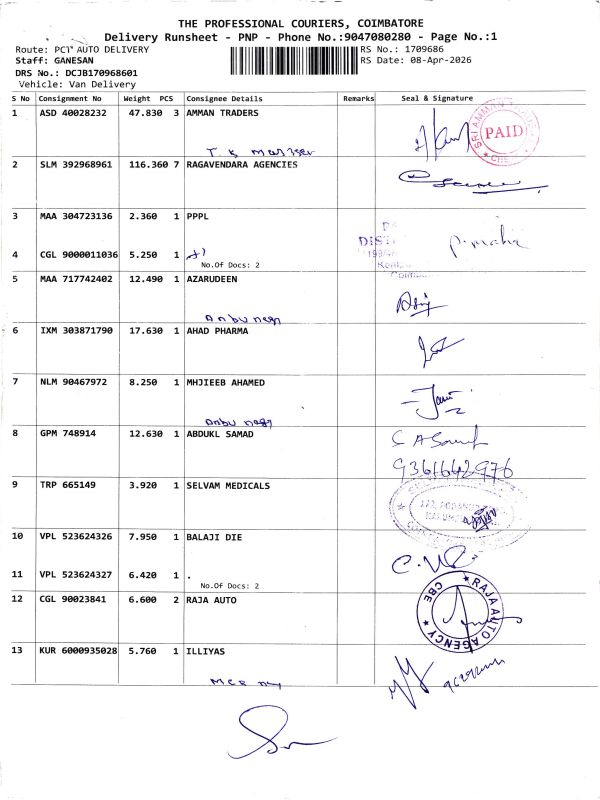 THE PROFESSIONAL COURIERS, COIMBATORE
Delivery Runsheet - PNP - Phone No.:9047080280 - Page No.:1
Route: PCT AUTO DELIVERY
RS No.: 1709686
Staff: GANESAN
RS Date: 08-Apr-2026
DRS No.: DCJB170968601
Vehicle: Van Delivery
S No Consignment No Weight PCS Consignee Details Remarks Seal & Signature
1 ASD 40028232 47.830 3 AMMAN TRADERS
SRI AMMAN PAID CBE
2 SLM 392968961 116.360 7 RAGAVENDARA AGENCIES
3 MAA 304723136 2.360 1 PPPL
P. maha
4 CGL 9000011036 5.250 1
No.Of Docs: 2
5 MAA 717742402 12.490 1 AZARUDEEN
Anbu nagn
6 IXM 303871790 17.630 1 AHAD PHARMA
7 NLM 90467972 8.250 1 MHJIEEB AHAMED
Anbu nagr
8 GPM 748914 12.630 1 ABDUKL SAMAD
9361642976
9 TRP 665149 3.920 1 SELVAM MEDICALS
10 VPL 523624326 7.950 1 BALAJI DIE
11 VPL 523624327 6.420 1 .
No.Of Docs: 2
12 CGL 90023841 6.600 2 RAJA AUTO
RAJA AUTO AGENCY CBE
13 KUR 6000935028 5.760 1 ILLIYAS